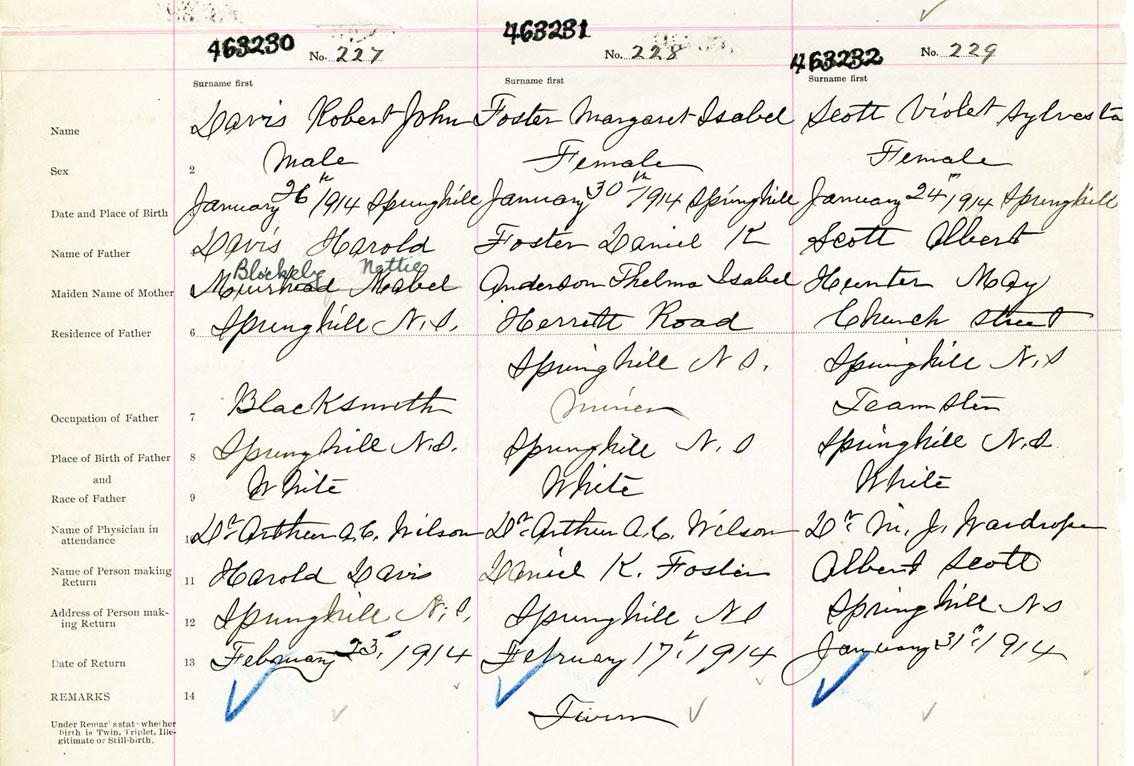 463230 No. 227 463231 No. 228 463232 No. 229
Surname first Surname first Surname first
Name Davis Robert John Foster Margaret Isabel Scott Violet Sylvesta
Sex 2 Male Female Female
Date and Place of Birth January 26th 1914 Springhill January 30th 1914 Springhill January 24th 1914 Springhill
Name of Father 4 Davis Harold Foster Daniel K Scott Albert
Blockely Nettie
Maiden Name of Mother Muirhead Mabel Anderson Thelma Isabel Hunter May
Residence of Father 6 Springhill N.S. Herrett Road Church street
Springhill N S. Springhill N.S
Occupation of Father 7 Blacksmith Miner Teamster
Place of Birth of Father 8 Springhill N.S. Springhill N. S Springhill N.S.
and
Race of Father 9 White White White
Name of Physician in
attendance 10 Dr Arthur A.C. Wilson Dr Arthur A.C. Wilson Dr. M. J. Wardrope
Name of Person making
Return 11 Harold Davis Daniel K. Foster Albert Scott
Address of Person mak-
ing Return 12 Springhill N.S. Springhill N S Springhill N S
Date of Return 13 February 23, 1914 February 17th 1914 January 31st 1914
REMARKS 14 Twin
Under Remar's stat- whether
birth is Twin, Triplet, Ille-
gitimate or Still-birth.